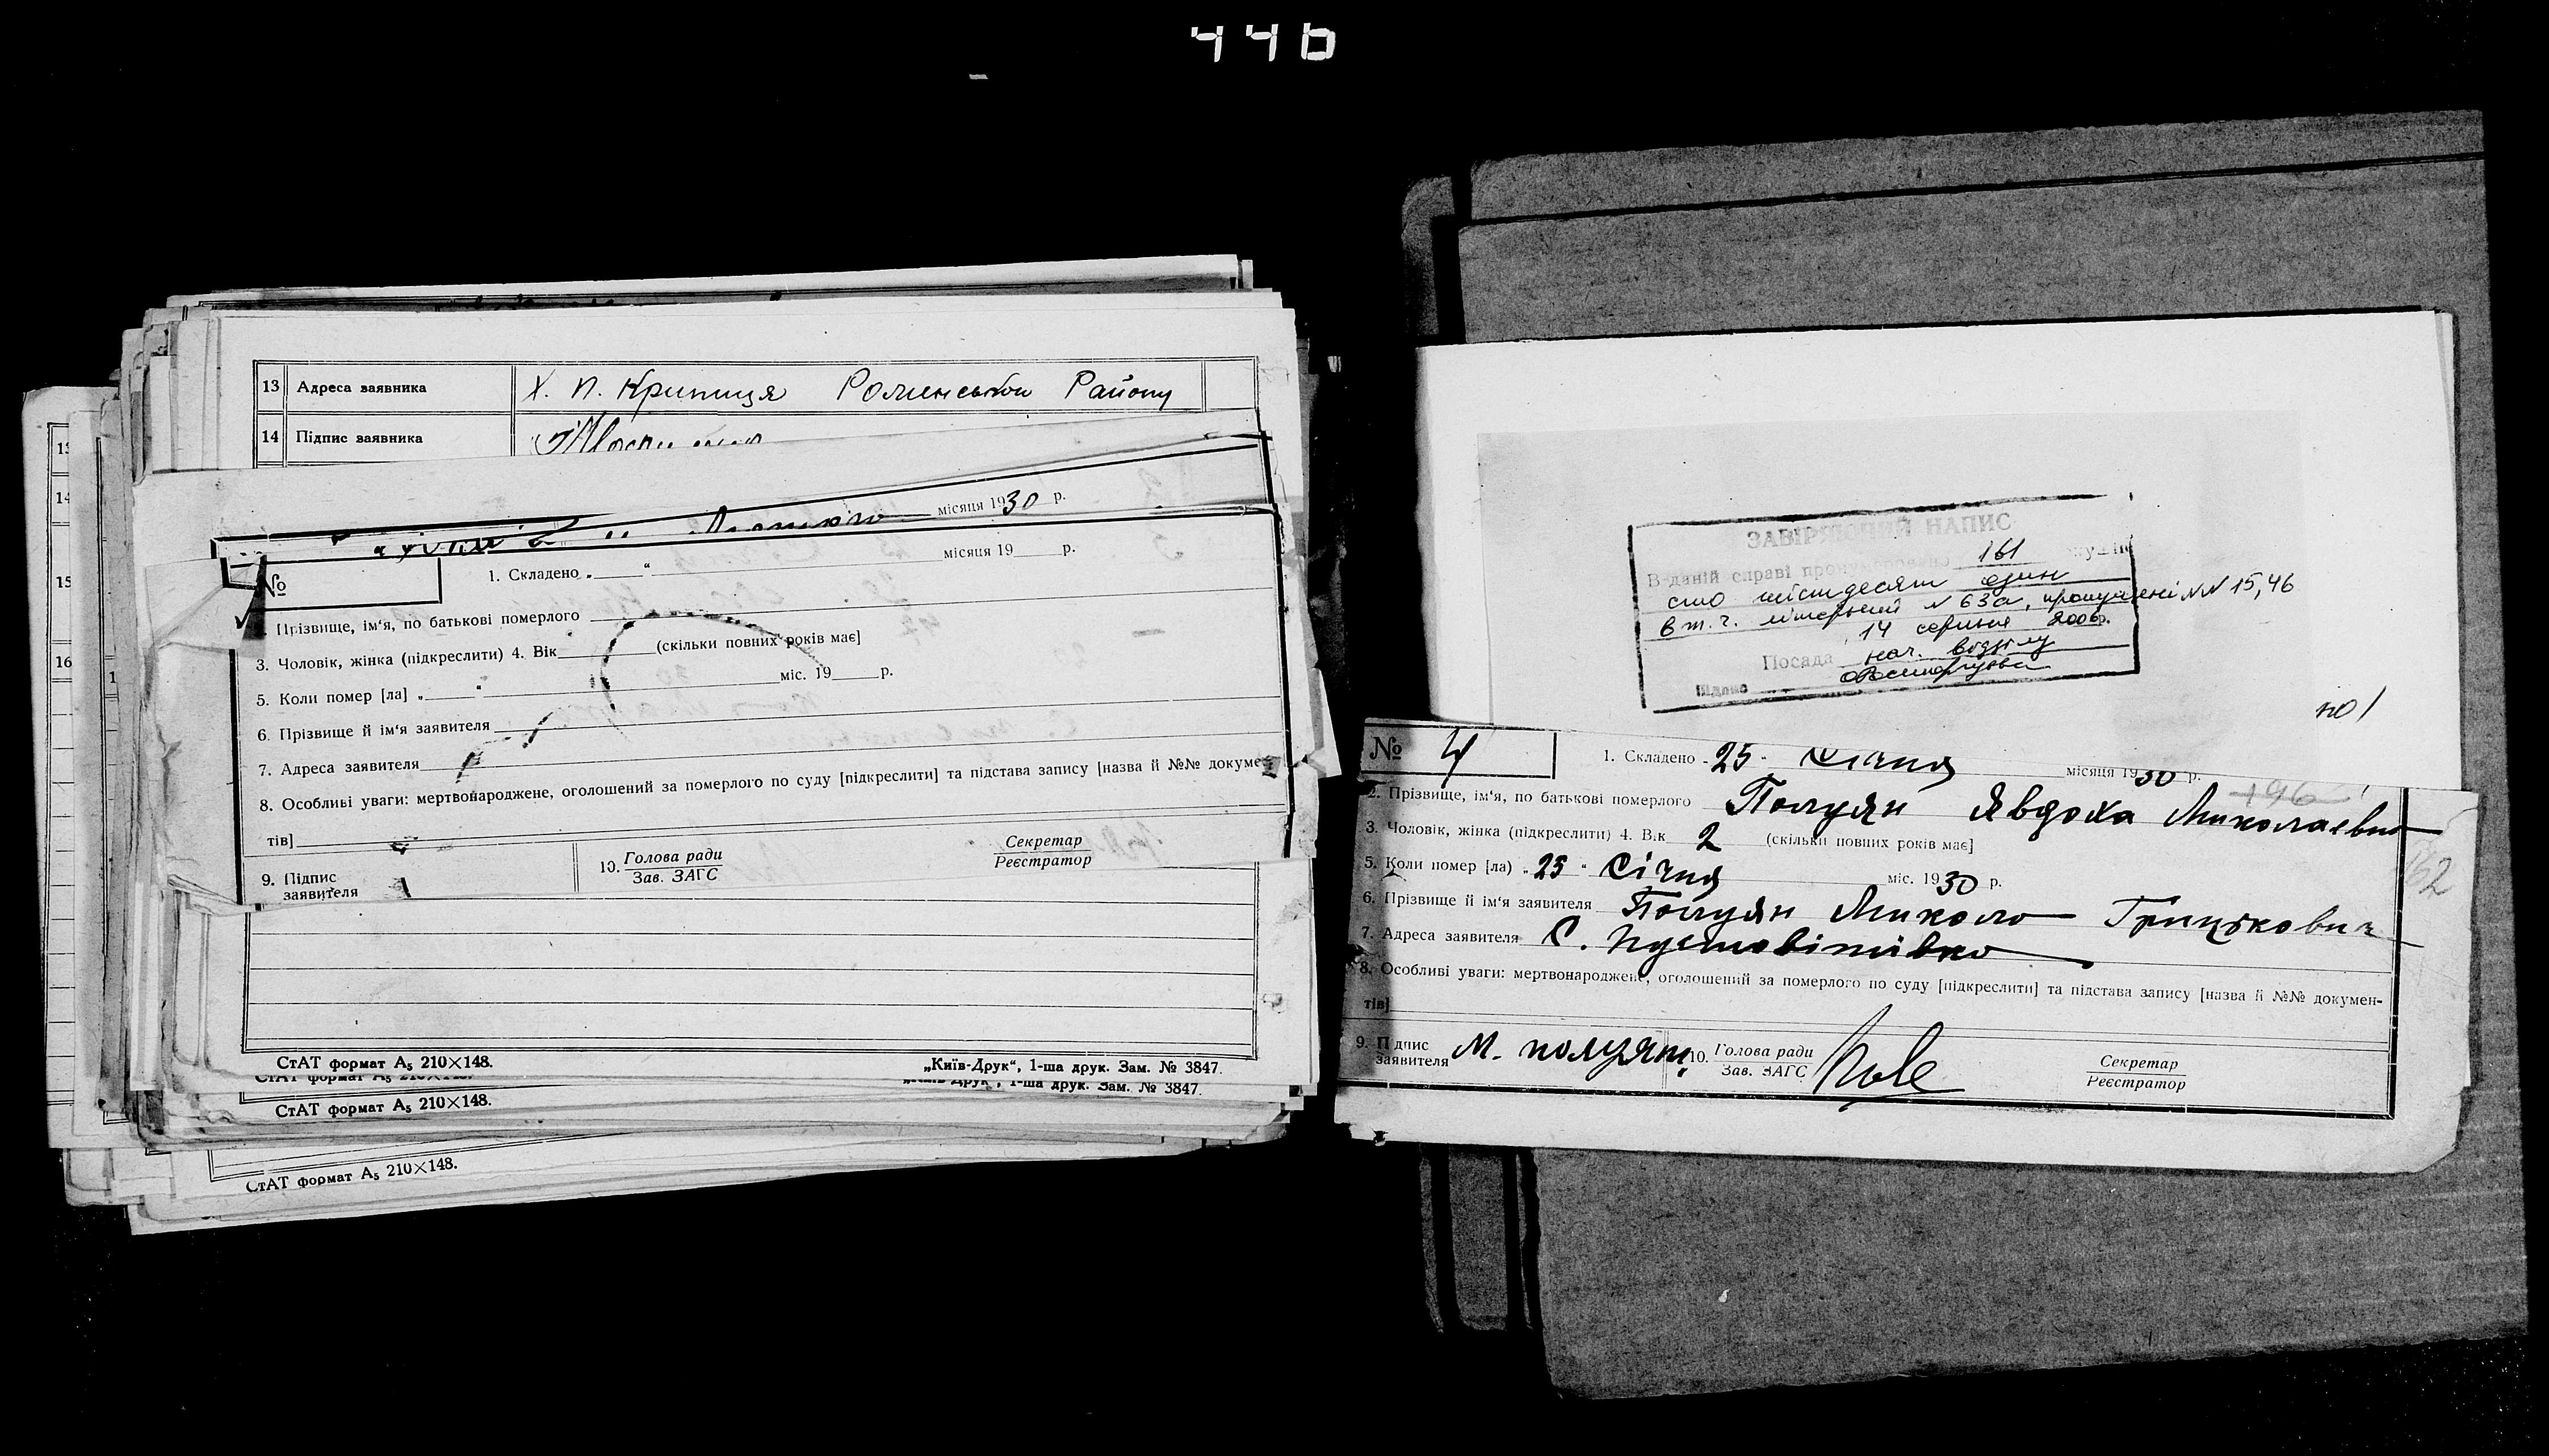 446
13 Адреса заявника Х. П. Криниця Роменської Району
14 Підпис заявника
місяця 1930 р.
№
1. Складено „ “ місяця 19 р.
Прізвище, ім‘я, по батькові померлого
3. Чоловік, жінка (підкреслити) 4. Вік (скільки повних років має]
5. Коли помер [ла] „ “ міс. 19 р.
6. Прізвище й ім‘я заявителя
7. Адреса заявителя
8. Особливі уваги: мертвонароджене, оголошений за померлого по суду [підкреслити] та підстава запису [назва й №№ докумен
тів]
9. Підпис заявителя
10. Голова ради Зав. ЗАГС
Секретар Реєстратор
СтАТ формат А5 210×148.
„Київ-Друк“, 1-ша друк. Зам. № 3847.
СтАТ формат А5 210×148.
„Київ-Друк“, 1-ша друк. Зам. № 3847.
СтАТ формат А5 210×148.
СтАТ формат А5 210×148.
15
14
15
16
1
ЗАВІРЯЮЧИЙ НАПИС
В даній справі пронумеровано 161
сто шістдесят один
в т. ч. літерний № 63а, пропущені №№ 15, 46
14 серпня 2006р.
Посада нач. відділу
Підпис
№ 4
1. Складено „25“ Січня місяця 1930 р.
196
2. Прізвище, ім‘я, по батькові померлого Полуян Явдоха Миколаевна
3. Чоловік, жінка (підкреслити) 4. Вік 2 (скільки повних років має]
162
5. Коли помер [ла) „25“ Січня міс. 1930 р.
6. Прізвище й ім‘я заявителя Полуян Микола Грицькович
7. Адреса заявителя С. Пустовітівка
8. Особливі уваги: мертвонароджене, оголошений за померлого по суду [підкреслити] та підстава запису [назва й №№ докумен-
тів]
9. Підпис заявителя М. полуян
10. Голова ради Зав. ЗАГС
Секретар Реєстратор